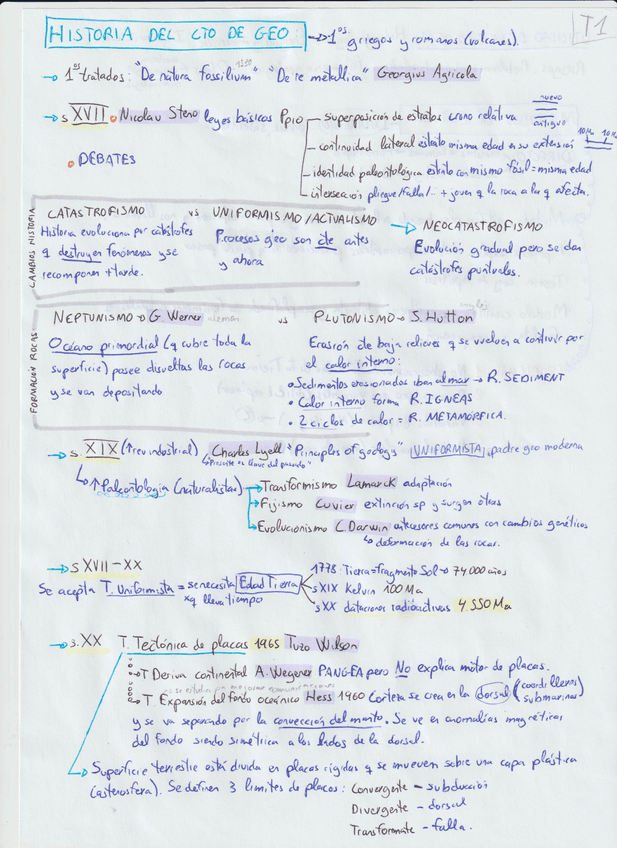 HISTORIA DEL CTO DE GEO → 1os griegos y romanos (volcanes). T1
→ 1os tratados: "De natura fossilium" "De re metallica" Georgius Agricola
→ s XVII • Nicolau Steno leyes básicas Ppio
superposición de estratos crono relativa
nuevo
antiguo
continuidad lateral estrato misma edad en su extensión 10Ma 10Ma
• DEBATES
identidad paleontológica estrato con mismo fósil = misma edad
intersección pliegue/falla/.. + joven q la roca a la q afecta.
CAMBIOS HISTORIA
CATASTROFISMO vs UNIFORMISMO/ACTUALISMO → NEOCATASTROFISMO
Historia evoluciona por catástrofes
q destruyen fenómenos y se
recomponen + tarde.
Procesos geo son cte antes
y ahora
Evolución gradual pero se dan
catástrofes puntuales.
FORMACIÓN ROCAS
NEPTUNISMO → G. Werner alemán vs PLUTONISMO → S. Hutton
Océano primordial (q cubre toda la
superficie) posee disueltas las rocas
y se van depositando
Erosión de baja relieves q se vuelven a contruir por
el calor interno:
• Sedimentos erosionados iban al mar → R. SEDIMENT
• Calor interno forma R. IGNEAS
• 2 ciclos de calor = R. METAMÓRFICA.
→ s. XIX (↑ rev industrial) Charles Lyell "Principles of geology" UNIFORMISTA, padre geo moderna
"Presente es clave del pasado"
↑ Paleontología (naturalistas)
→ Transformismo Lamarck adaptación
→ Fijismo Cuvier extinción sp y surgen otras
→ Evolucionismo C. Darwin antecesores comunes con cambios genéticos
↳ deformación de las rocas.
→ s XVII - XX
Se acepta T. Uniformista = se necesita Edad Tierra
xq lleva tiempo
1778: Tierra = fragmento Sol → 74000 años
s XIX Kelvin 100 Ma
s XX dataciones radioactivas 4 550 Ma
→ s. XX T. Tectónica de placas 1965 Tuzo Wilson
→ T Deriva continental A. Wegener PANGEA pero No explica motor de placas.
→ T. Expansión del fondo oceánico Hess 1960 Corteza se crea en la dorsal (cordilleras submarinas)
y se va separando por la convección del manto. Se ve en anomalías magnéticas
del fondo siendo simétrica a los lados de la dorsal.
Superficie terrestre está divida en placas rígidas q se mueven sobre una capa plástica
(astenosfera). Se definen 3 limites de placas: Convergente - subducción
Divergente - dorsal
Transformante - falla.